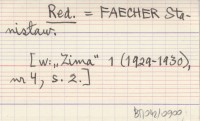 Red. = FAECHER Sta-
nisław.
[w: „Zima” 1 (1929-1930),
nr 4, s. 2.]